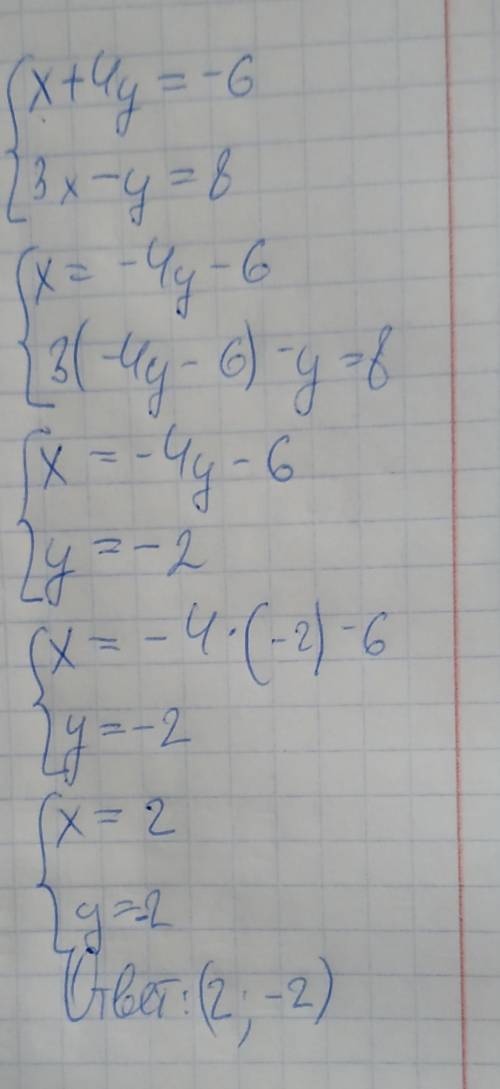 x+4y=-6
3x-y=8
x=-4y-6
3(-4y-6)-y=8
x=-4y-6
y=-2
x=-4·(-2)-6
y=-2
x=2
y=-2
Ответ:(2;-2)